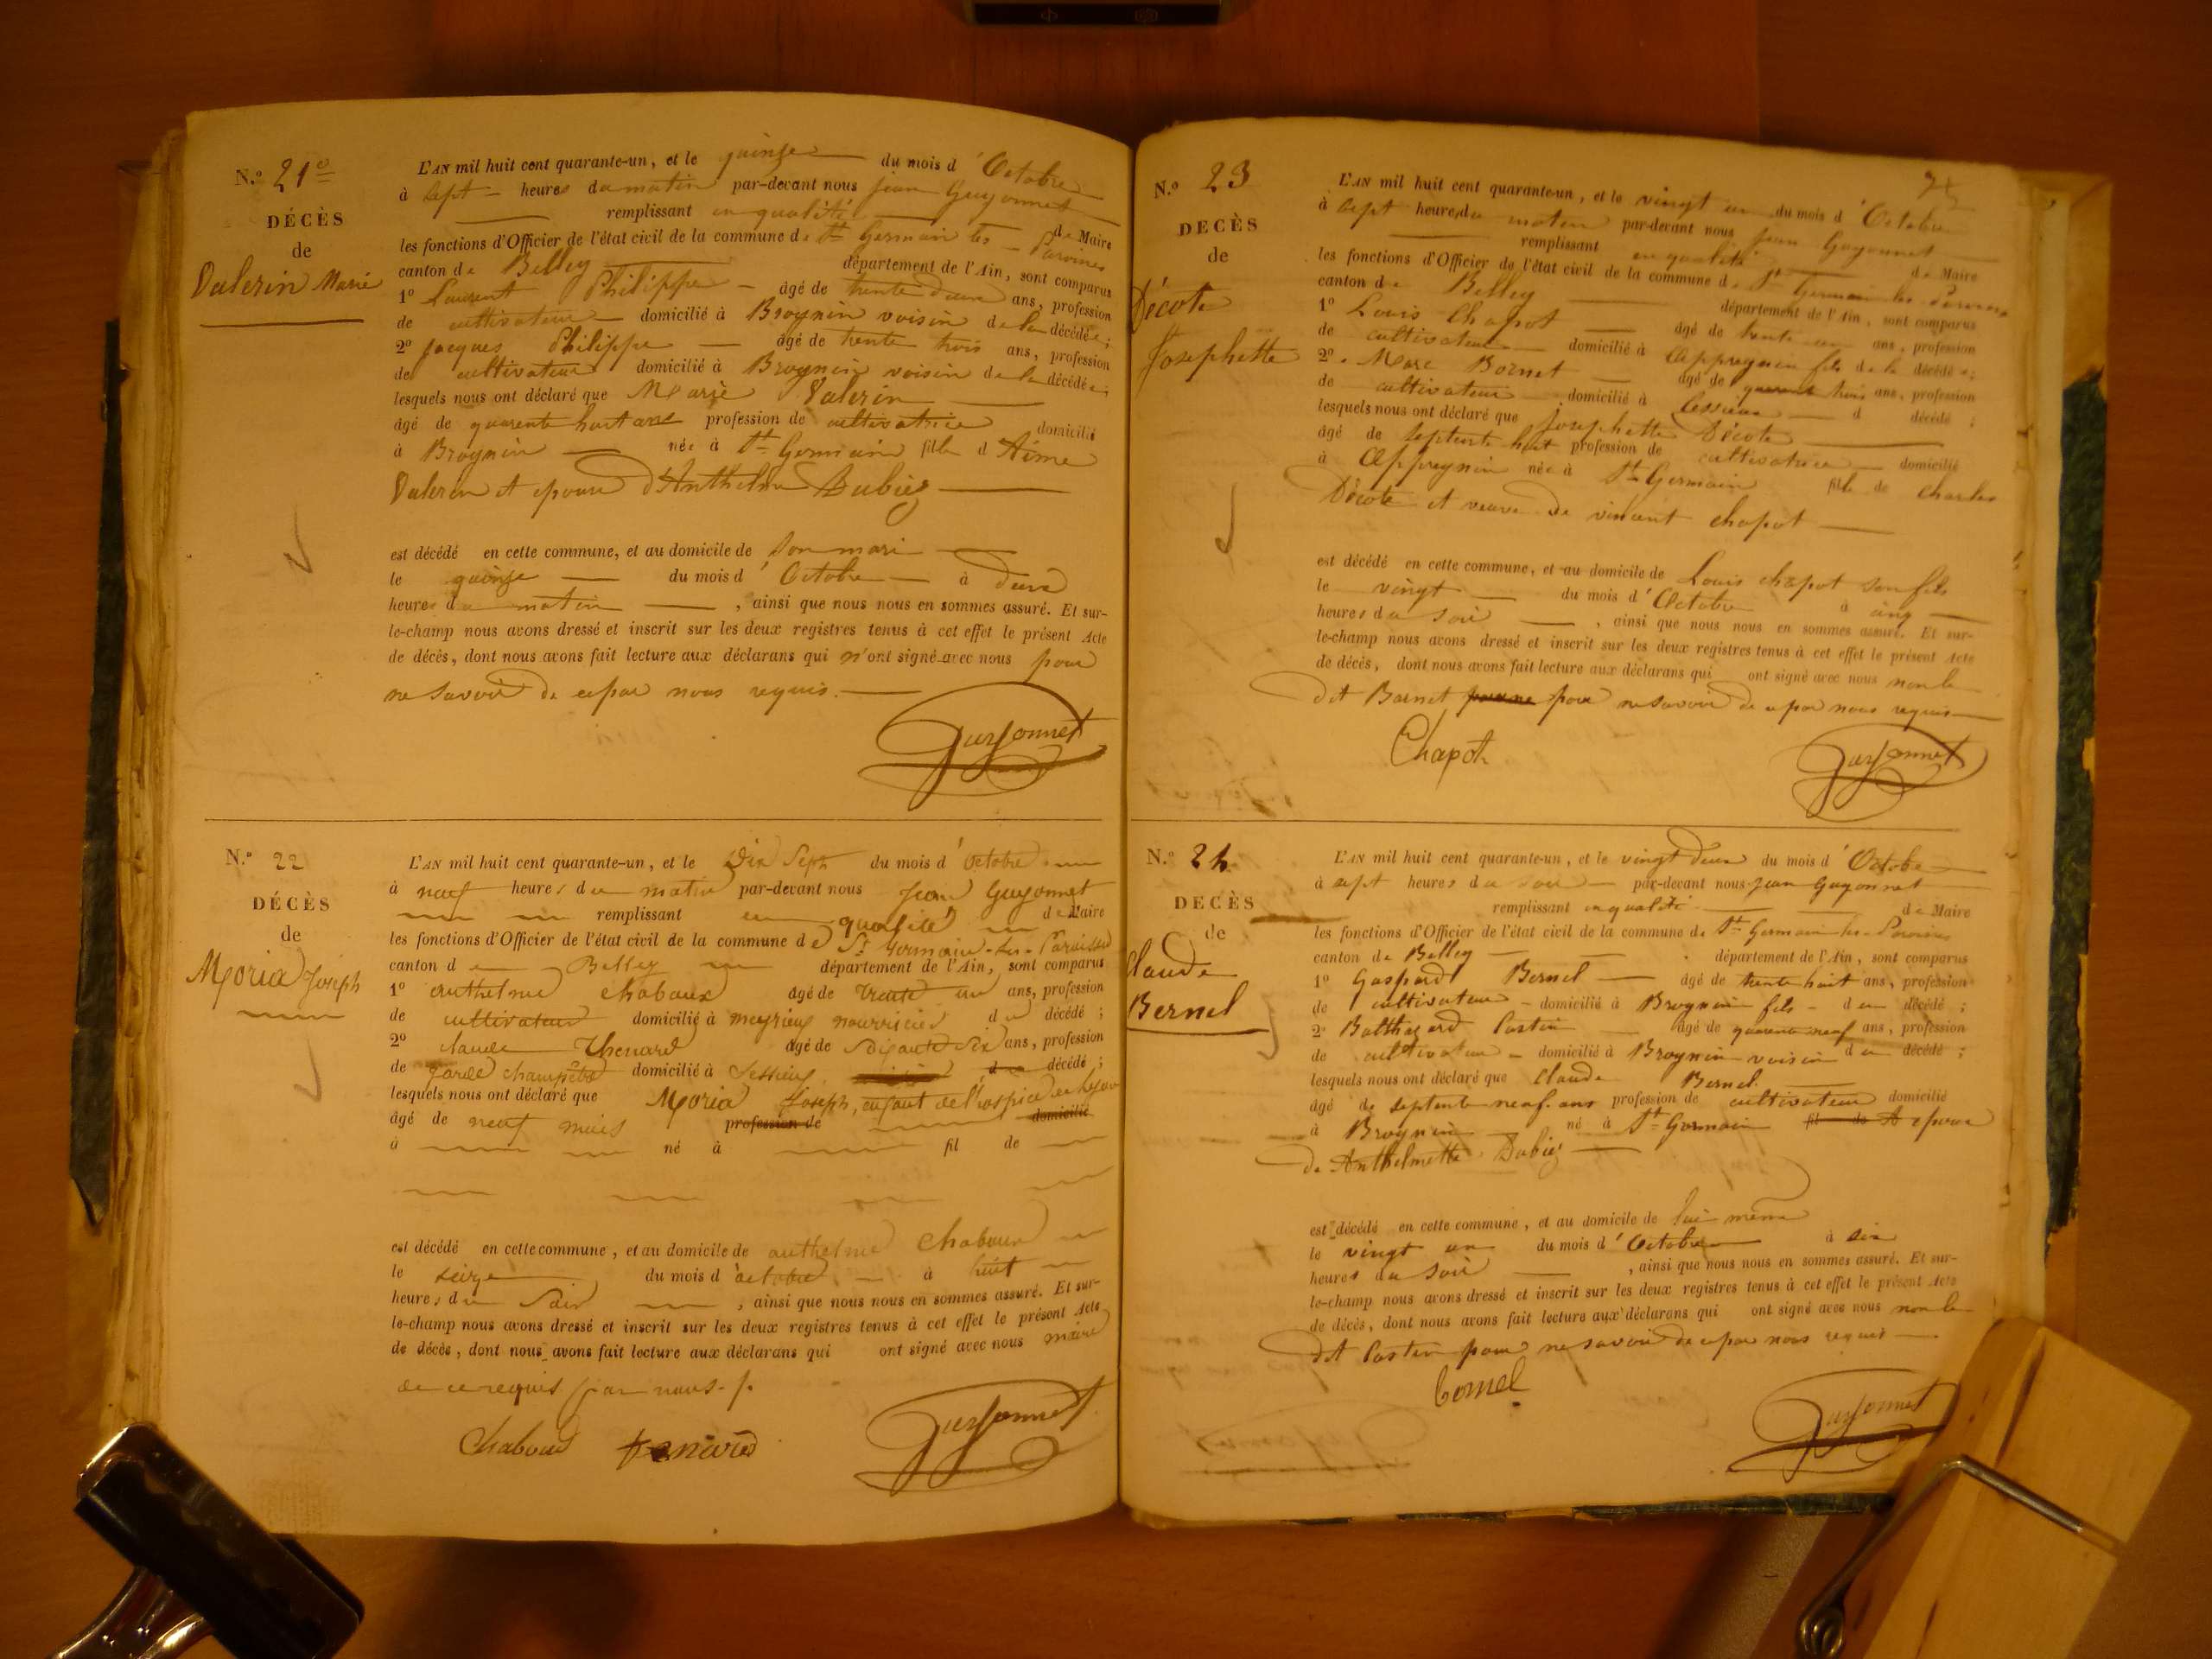 N.º 21e
DÉCÈS
de
Valerin Marie
L'AN mil huit cent quarante-un, et le quinze du mois d'Octobre
à sept heures du matin par-devant nous jean Guyonnet
remplissant en qualité de Maire
les fonctions d'Officier de l'état civil de la commune de St Germain les Paroisses
canton de Belley département de l'Ain, sont comparus
1º Laurent Philippe âgé de trente deux ans, profession
de cultivateur domicilié à Brognin voisin de la décédée;
2º jacques Philippe âgé de trente trois ans, profession
de cultivateur domicilié à Brognin voisin de la décédée;
lesquels nous ont déclaré que Marie Valerin
âgé de quarente huit ans profession de cultivatrice domicilié
à Brognin née à St Germain fille d Aimé
Valerin et epouse d'Anthelme Dubiez
est décédé en cette commune, et au domicile de son mari
le quinze du mois d'Octobre à deux
heures du matin, ainsi que nous nous en sommes assuré. Et sur-
le-champ nous avons dressé et inscrit sur les deux registres tenus à cet effet le présent Acte
de décès, dont nous avons fait lecture aux déclarans qui n'ont signé avec nous pour
ne savoir de ce par nous requis.
Guyonnet
N.º 22
DÉCÈS
de
Moria Joseph
L'AN mil huit cent quarante-un, et le Dix Sept du mois d'octobre
à neuf heures du matin par-devant nous Jean Guyonnet
remplissant en qualité de Maire
les fonctions d'Officier de l'état civil de la commune de St Germain-les-Paroisses
canton de Belley département de l'Ain, sont comparus
1º anthelme chaboux âgé de trente un ans, profession
de cultivateur domicilié à meyrieux nourricier du décédé;
2º claude Thenard âgé de soixante six ans, profession
de garde champêtre domicilié à Cessieux décédé;
lesquels nous ont déclaré que Moria Joseph, enfant de l'hospice de Lyon
âgé de neuf mois profession de domicilié
à né à fil de
est décédé en cette commune, et au domicile de anthelme chaboux
le seize du mois d'octobre à huit
heures du Soir, ainsi que nous nous en sommes assuré. Et sur-
le-champ nous avons dressé et inscrit sur les deux registres tenus à cet effet le présent Acte
de décès, dont nous avons fait lecture aux déclarans qui ont signé avec nous maire
de ce requis par nous.
Chaboud tenard Guyonnet
N.º 23
DECÈS
de
Décote
Josephette
L'AN mil huit cent quarante-un, et le vingt un du mois d'Octobre
à sept heures du matin par-devant nous jean Guyonnet
remplissant en qualité de Maire
les fonctions d'Officier de l'état civil de la commune de St Germain les Paroisses
canton de Belley département de l'Ain, sont comparus
1º Louis Chapot âgé de trente un ans, profession
de cultivateur domicilié à Appregnin fils de la décédée;
2º Marc Bornet âgé de quarent trois ans, profession
de cultivateur domicilié à Cessieux d décédé;
lesquels nous ont déclaré que Josephette Décote
âgé de septente huit profession de cultivatrice domicilié
à Appregnin née à St Germain fille de Charles
Décote et veuve de vincent chapot
est décédé en cette commune, et au domicile de Louis chapot son fils
le vingt du mois d'Octobre à cinq
heures du soir, ainsi que nous nous en sommes assuré. Et sur-
le-champ nous avons dressé et inscrit sur les deux registres tenus à cet effet le présent Acte
de décès, dont nous avons fait lecture aux déclarans qui ont signé avec nous non le
dit Bornet pour ne savoir de ce par nous requis
Chapot Guyonnet
N.º 24
DECÈS
de
Claude
Bernel
L'AN mil huit cent quarante-un, et le vingt deux du mois d'Octobre
à sept heures du soir par-devant nous jean Guyonnet
remplissant en qualité de Maire
les fonctions d'Officier de l'état civil de la commune de St Germain les Paroisses
canton de Belley département de l'Ain, sont comparus
1º Gaspard Bernel âgé de trente huit ans, profession
de cultivateur domicilié à Brognin fils du décédé;
2º Balthazard Costin âgé de quarante neuf ans, profession
de cultivateur domicilié à Brognin voisin du décédé;
lesquels nous ont déclaré que Claude Bernel
âgé de septente neuf ans profession de cultivateur domicilié
à Brognin né à St Germain fil de Et epoux
de Anthelmette Dubiez
est décédé en cette commune, et au domicile de lui même
le vingt un du mois d'Octobre à six
heures du soir, ainsi que nous nous en sommes assuré. Et sur-
le-champ nous avons dressé et inscrit sur les deux registres tenus à cet effet le présent Acte
de décès, dont nous avons fait lecture aux déclarans qui ont signé avec nous non le
dit Costin pour ne savoir de ce par nous requis
bornel Guyonnet